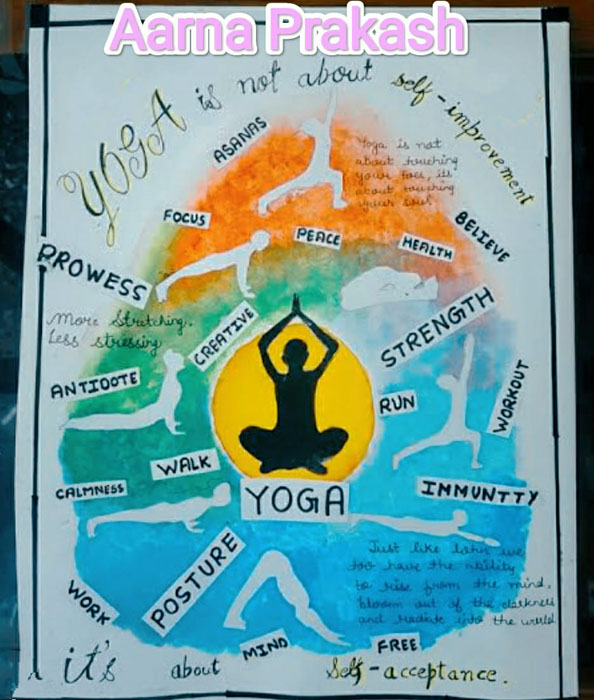 Aarna Prakash
YOGA is not about self-improvement
ASANAS
Yoga is not
about touching
your toes, its
about touching
your soul
FOCUS
PEACE
HEALTH
BELIEVE
PROWESS
More stretching.
Less stressing
CREATIVE
STRENGTH
ANTIDOTE
RUN
WORKOUT
WALK
CALMNESS
YOGA
IMMUNTTY
POSTURE
Just like lotus we
too have the ability
to rise from the mind,
bloom out of the darkness
and radiate into the world
WORK
MIND
FREE
it's about self-acceptance.